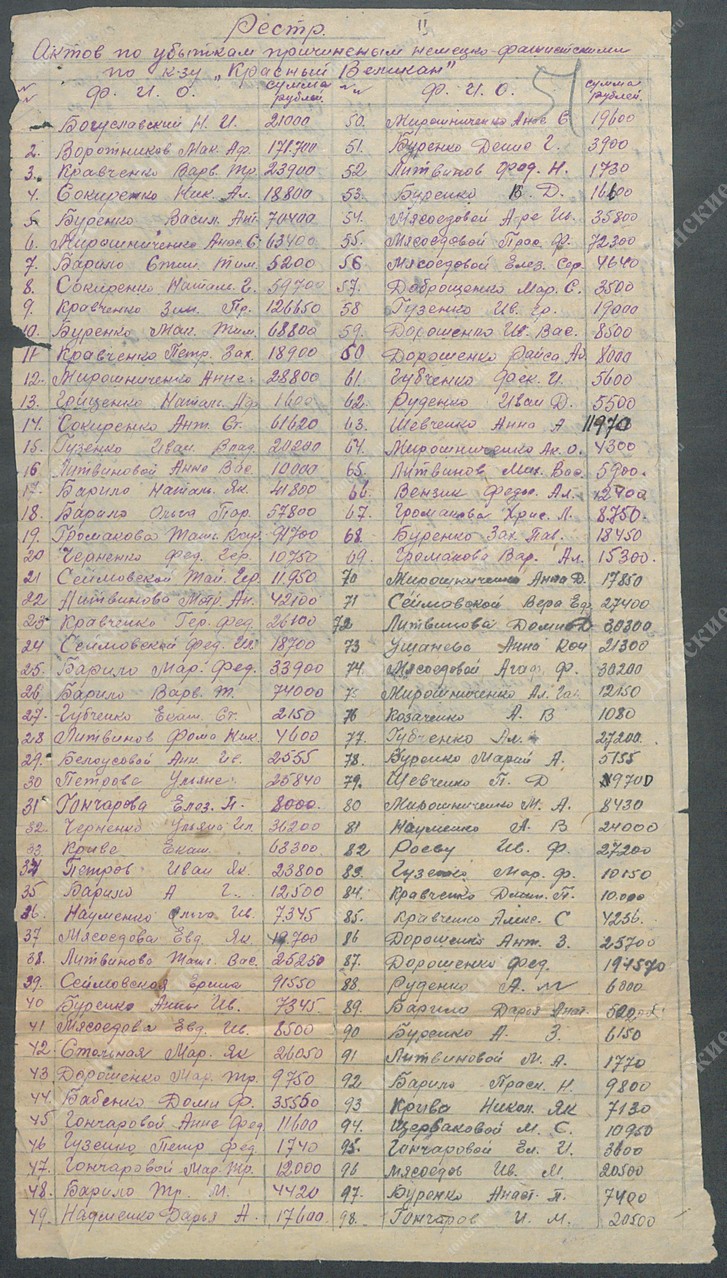 Рестр. II
Актов по убыткам причиненым немецко-фашистскими
по к-зу "Красный Великан" 51
№№ Ф. И. О. сумма рублей
Богуславский Н. И. 21000
2. Воротников Мак. Аф. 171.700
3. Кравченко Варв. Тр. 23900
4. Сокиренко Ник. Ал. 18800
5. Буренко Васил. Ант. 70400
6. Мирошниченко 63400
7. Барило Тим. 5200
8. Сокиренко Натал. Г. 59700
9. Кравченко Зин. Пр. 126650
10. Буренко Мак. Тим. 68800
11. Кравченко Петр. Зах. 18900
12. Мирошниченко Анне. 28800
13. Грищенко Натал. Аф. 1600
14. Сокиренко Ант. Ст. 61620
15. Гузенко Иван. Влад. 20200
16. Литвиновой Анне Вас. 10000
17. Барило Натал. Як. 41800
18. Барило Ольга Пар. 57800
19. Громакова 91700
20. Черненко Фед. Гер. 10750
21. Сеймовской Тат. Гр. 11950
22. Литвинова Мотр. Ан. 42100
23. Кравченко Гер. Фед. 26100
24. Сеймовской Фед. 18700
25. Барило Мар. Фед. 33900
26. Барило Варв. Т. 74000
27. Губченко Екат. Ст. 2150
28. Литвинов Фома Ник. 4600
29. Белоусовой Анн. Ив. 2555
30. Петрова Ульяне 25840
31. Гончарова Елиз. П. 8000
32. Черненко Ульяна 36200
33. Криве Екат. 63300
34. Петров Иван Як. 23800
35. Барило А Г. 12500
36. Науменко Ольга Ив. 7345
37. Мясоедова Евд. Як. 19700
38. Литвинова Вас. 25250
39. Сеймовская 91550
40. Буренко Анны Ив. 7345
41. Мясоедова Евд. Ив. 8500
42. Стольная Мар. Як 26050
43. Дорошенко Мар. Тр. 9750
44. Бабенко Доми Ф. 35550
45. Гончаровой Анне Фед 11600
46. Гузенко Петр Фед 1740
47. Гончаровой Мар. Тр. 12,000
48. Барило Тр. М. 4420
49. Надменко Дарья А. 17600
№№ Ф. И. О. сумма рублей.
50. Мирошниченко С 19600
51. Буренко Г. 3900
52. Литвинов Фед. Н. 1730
53. Буренко В Д. 16600
54. Мясоедовой Ив. 35800
55. Мясоедовой Прас. Ф. 72300
56. Мясоедовой Елез. Сер. 4640
57. Доброщенко Мар. С. 3500
58. Гузенко Ив. Гр. 19000
59. Дорошенко Ив. Вас. 8500
60. Дорошенко Раиса 8000
61. Губченко И. 5600
62. Руденко Иван Д. 5500
63. Шевченко Анна А 11970
64. Мирошниченко Ак. О. 4300
65. Литвинов Мак. Вас. 5900.
66. Вензик Федос. Ал. 12400
67. Громакова Хрис. Л. 8750.
68. Буренко Зах. Пав. 18450
69. Громакова Вар. Ал. 15300.
70. Мирошниченко Анна Д. 17850
71. Сеймовской Вера Ед. 27400
72. Литвинова 30300
73. Ушанева Анна Кон 21300
74. Мясоедовой Агаф. Ф. 30200
75. Мирошниченко Ал. 12150
76. Козаченко А. В 1080
77. Губченко Ал. 27200.
78. Буренко Марий А. 5155
79. Шевченко П. Д 19700
80. Мирошниченко М. А. 8430
81. Науменко А. В 24000
82. Роеву Ив. Ф. 27200
83. Гузенко Мар. Ф. 10150
84. Кравченко П. 10.000
85. Кравченко Алекс. С 4256.
86. Дорошенко Ант. З. 25700
87. Дорошенко Фед. 194570
88. Руденко А. 6000
89. Барило Дарья Анат.
90. Буренко А. З. 6150
91. Литвиновой М. А. 1770
92. Барило Праск. Н. 9800
93. Крива Никол. Як 7130
94. Щербаковой М. С. 10950
95. Гончаровой Ел. И. 3600
96. Мясоедов Ив. М. 20500
97. Буренко Анаст. П. 7400
98. Гончаров И. М. 20500